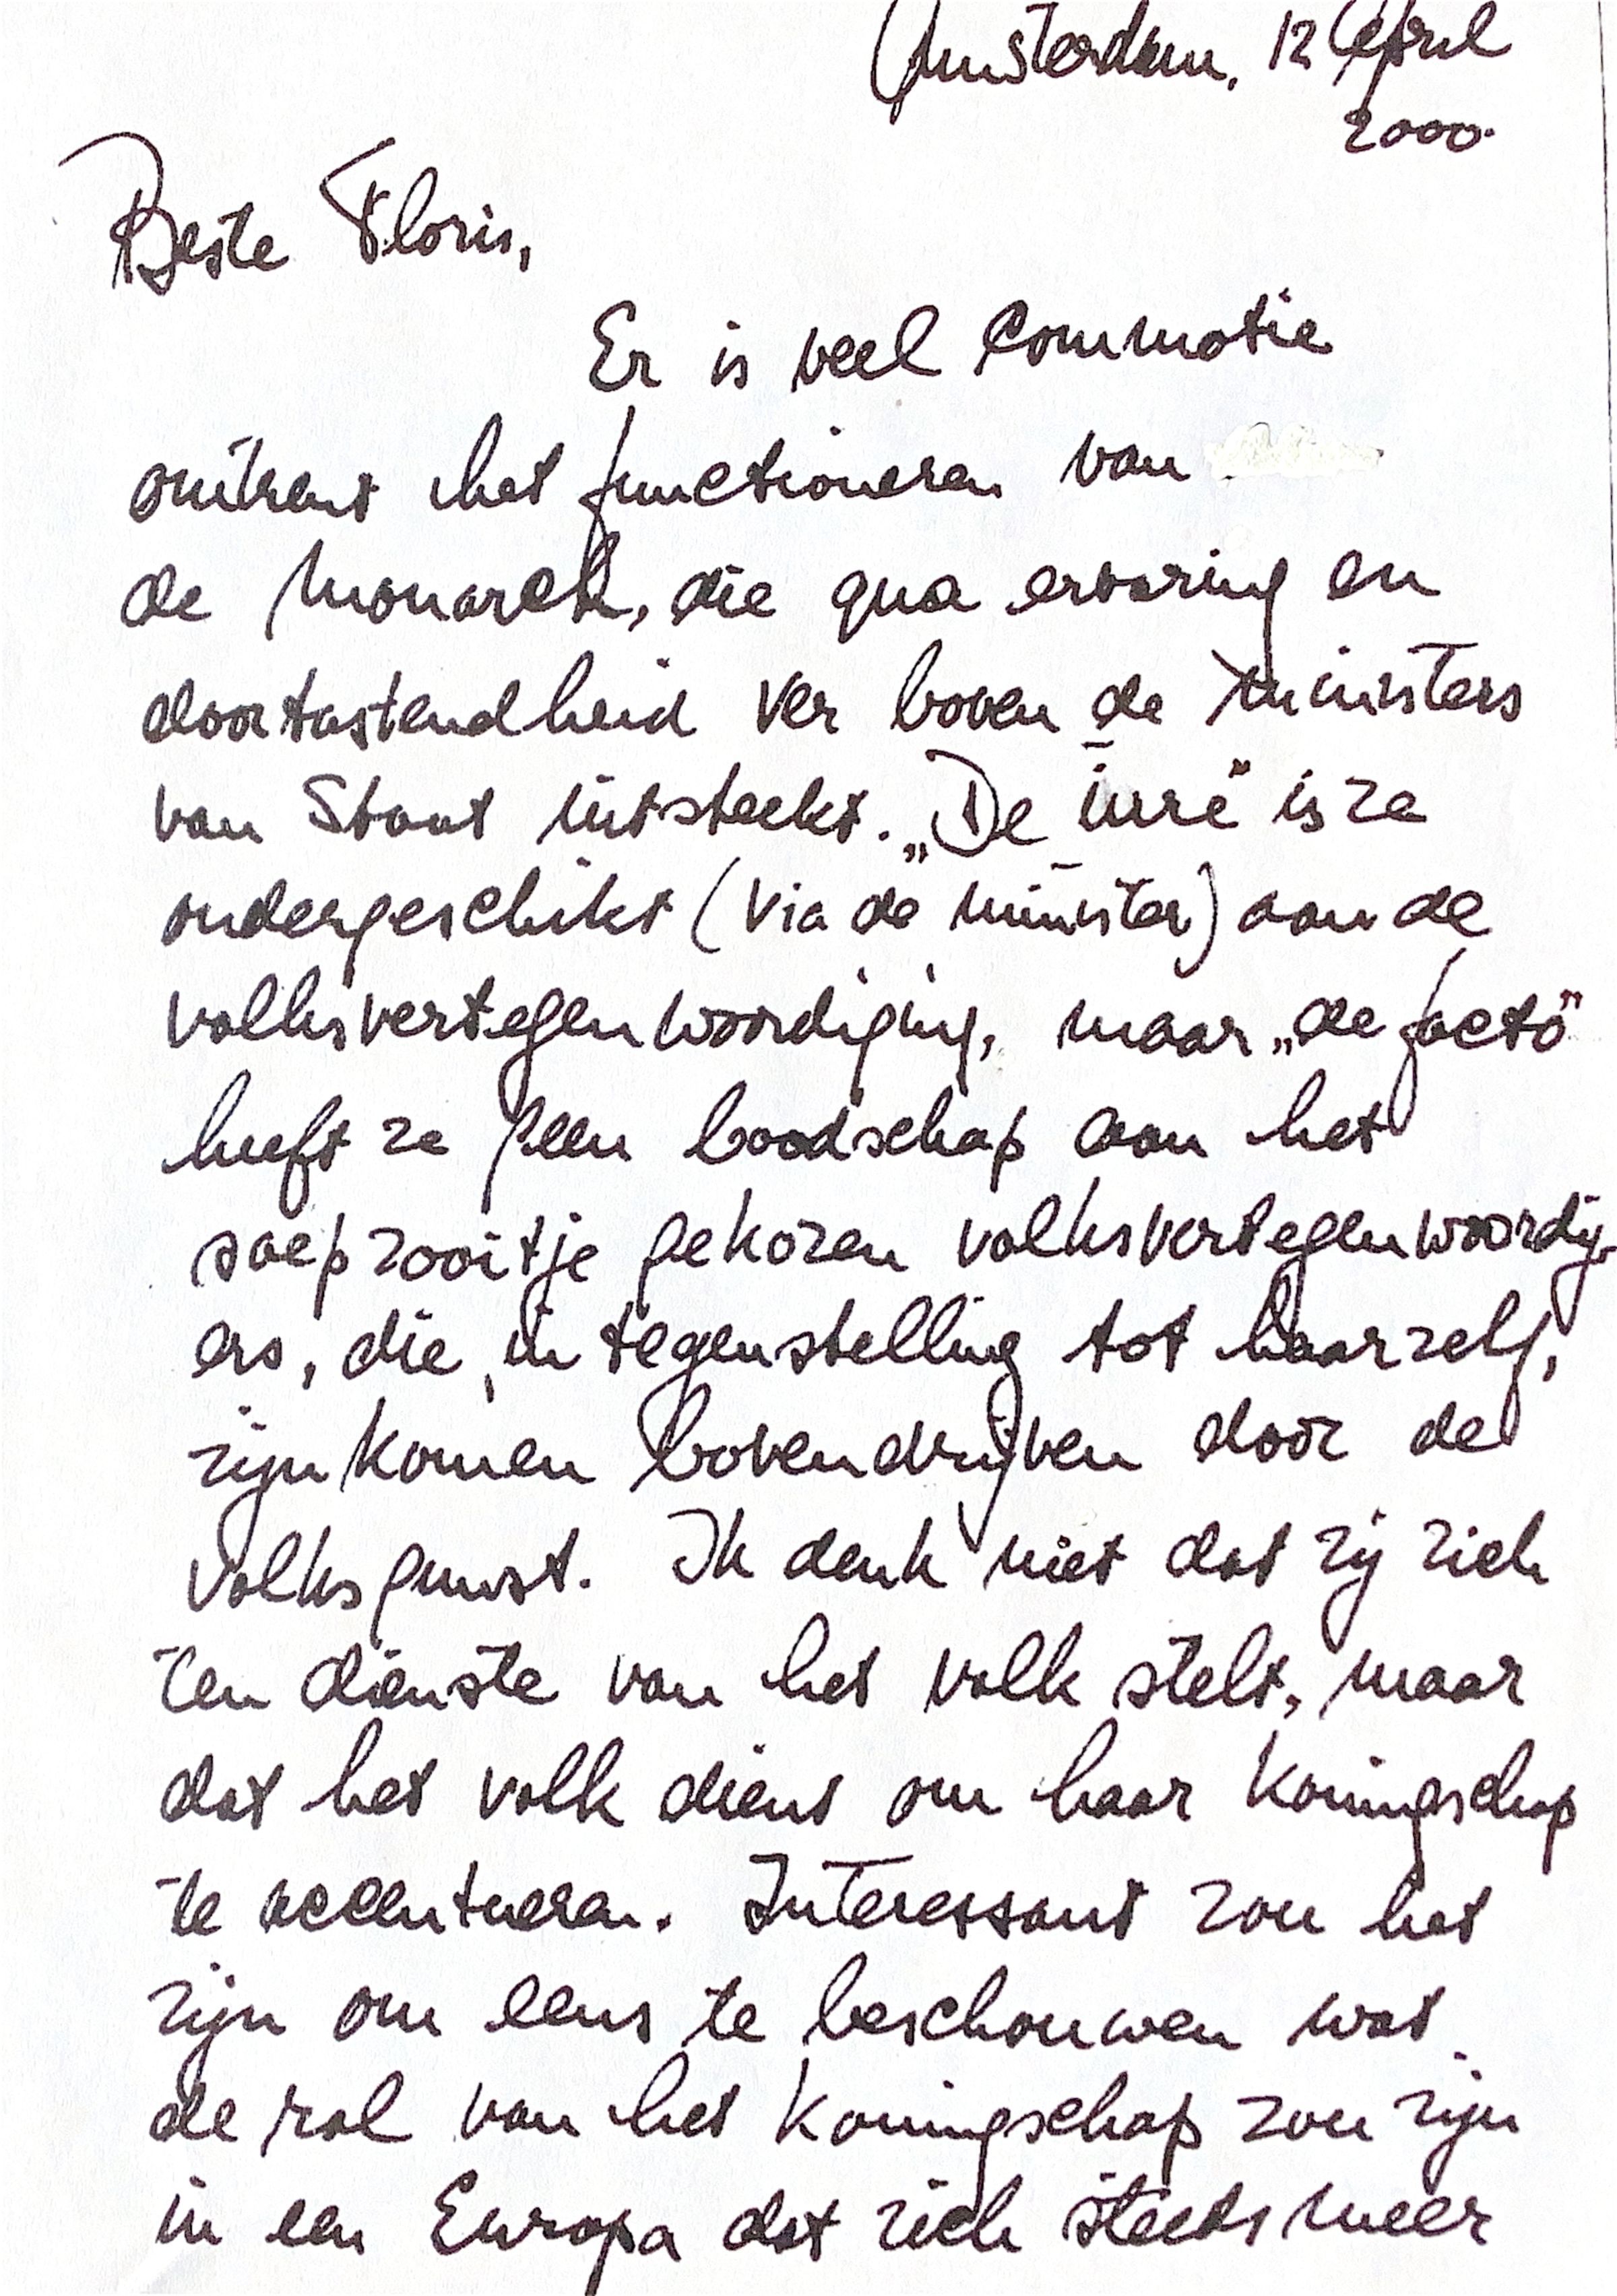 Amsterdam, 12 April
2000.
Beste Floris,
Er is veel commotie
omtrent het functioneren van
de monarch, die qua ervaring en
doortastendheid ver boven de ministers
van Staat uitsteekt. „De iure” is ze
ondergeschikt (via de minister) aan de
volksvertegenwoordiging, maar „de facto”
heeft ze geen boodschap aan het
soepzooitje gekozen volksvertegenwoordig-
ers, die, in tegenstelling tot haarzelf,
zijn komen bovendrijven door de
volksgunst. Ik denk niet dat zij zich
ten dienste van het volk stelt, maar
dat het volk dient om haar koningschap
te accentueren. Interessant zou het
zijn om eens te beschouwen wat
de rol van het koningschap zou zijn
in een Europa dat zich steeds meer